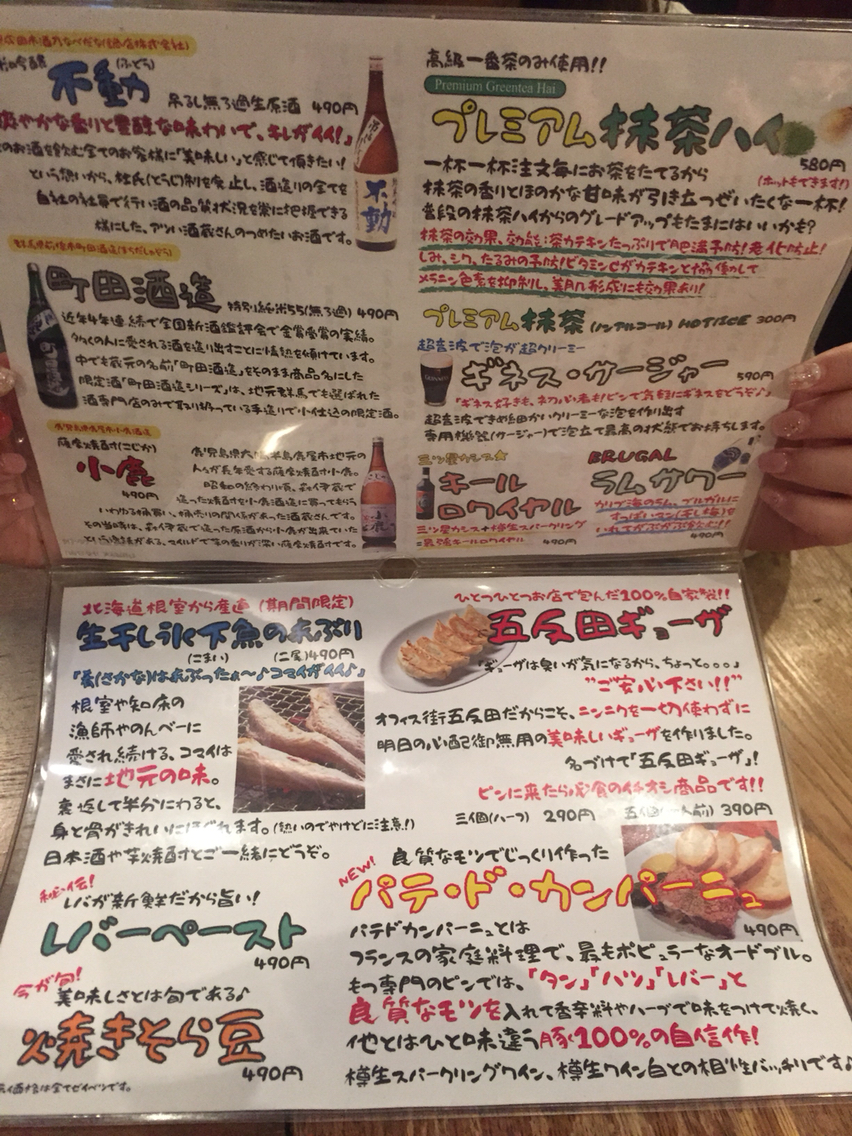 不動
(ふどう)
吊るし無ろ過生原酒 490円
爽やかな香りと豊醇な味わいで、キレがイイ!」
のお酒を飲む全てのお客様に「美味しい」と感じて頂きたい!
という想いから、杜氏(とうじ)制を廃止し、酒造りの全てを
自社の社員で行い酒の品質状況を常に把握できる
様にした、アツい酒蔵さんのつめたいお酒です。
町田酒造
特別純米55(無ろ過) 490円
近年4年連続で全国新酒鑑評会で金賞受賞の実績。
多くの人に愛される酒を造り出すことに情熱を傾けています。
中でも蔵元の名前「町田酒造」をそのまま商品名にした
限定酒「町田酒造シリーズ」は、地元群馬でも選ばれた
酒専門店のみで取り扱っている手造りで小仕込の限定酒。
薩摩焼酎(こじか)
小鹿
490円
鹿児島県大隅半島鹿屋市地元の
人々が長年愛する薩摩焼酎小鹿。
昭和の終わり頃、森伊蔵で
造った焼酎を小鹿酒造に買ってもらう
いわゆる桶買い、桶売りの関係があった酒蔵さんです。
その当時は、森伊蔵で造った原酒から小鹿が出来ていた
という逸話がある、マイルドで芋の香りが深い薩摩焼酎です。
高級一番茶のみ使用!!
Premium Greentea Hai
プレミアム抹茶ハイ
580円
(ホットもできます!)
一杯一杯注文毎にお茶をたてるから
抹茶の香りとほのかな甘味が引き立つぜいたくな一杯!
普段の抹茶ハイからのグレードアップもたまにはいいかも?
抹茶の効果、効能:茶カテキンたっぷりで肥満予防!老化防止!
しみ、シワ、たるみの予防!ビタミンCがカテキンと協働して
メラニン色素を抑制し、美肌形成にも効果あり!
プレミアム抹茶 (ノンアルコール) HOT/ICE 300円
超音波で泡が超クリーミー
ギネス・サージャー
590円
「ギネス好きも、ネガ心者もピンで気軽にギネスをどうぞ♪」
超音波できめ細かいクリーミーな泡を作り出す
専用機器(サージャー)で泡立て最高の状態でお持ちします。
三ツ星カシス★
キール
ロワイヤル
三ツ星カシス+樽生スパークリング
最強キールロワイヤル 490円
BRUGAL
ラムサワー
カリブ海のラム、ブルガルに
すっぱいウメ(干し梅)を
いれてがぶがぶ飲む!!
490円
北海道根室から産直(期間限定)
生干し氷下魚の炙り
(こまい) (二尾)490円
「肴(さかな)は炙ったぁ〜♪コマイがイイ♪」
根室や知床の
漁師やのんべーに
愛され続ける、コマイは
まさに地元の味。
裏返して半分にわると、
身と骨がきれいにほぐれます。(熱いのでやけどに注意!)
日本酒や芋焼酎とご一緒にどうぞ。
秘伝!
レバが新鮮だから旨い!
レバーペースト
490円
今が旬!
美味しさとは旬である♪
焼きそら豆
490円
価格は全てゼイベツです。
ひとつひとつお店で包んだ100%自家製!!
五反田ギョーザ
「ギョーザは臭いが気になるから、ちょっと。。。」
"ご安心下さい!!"
オフィス街五反田だからこそ、ニンニクを一切使わずに
明日の心配御無用の美味しいギョーザを作りました。
名づけて「五反田ギョーザ」!
ピンに来たら必食のイチオシ商品です!!
三個(ハーフ) 290円 五個(一人前) 390円
NEW!
良質なモツでじっくり作った
パテ・ド・カンパーニュ
490円
パテドカンパーニュとは
フランスの家庭料理で、最もポピュラーなオードブル。
もつ専門のピンでは、「タン」「ハツ」「レバー」と
良質なモツを入れて香辛料やハーブで味をつけて焼く、
他とはひと味違う豚100%の自信作!
樽生スパークリングワイン、樽生ワイン白との相性バッチリです♪